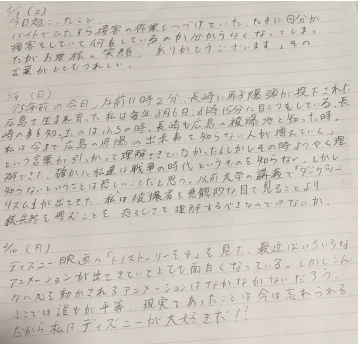 8/8 (土)
今日起こったこと
バイトでひたすら接客の作業をつづけていた。たまに自分が
接客をしていて何をしているのか分からなくなってしまっ
たがお客様の笑顔、ありがとうございます、その
言葉がとてもうれしい。
8/9 (日)
75年前の今日、午前11時2分、長崎に原子爆弾が投下された
広島で生まれ育った私は毎年8月6日、8時15分に目をつむしている。長
崎の事を知ったのは小5の時。長崎も広島の被爆地と知った時。
私は今まで広島の原爆の出来事で知らない人が増えていく」
という言葉が引っかって理解できていなかった。もしかしその時ようやく理
解できた。確かに私達は戦争の時代というものを知らない。しかし
知らないということは悲しいことだと思う。以前大学の講義で「ダークツー
リズム」が出てきた。私は被爆者を悲観的な目で見ることより
核兵器を憎むことを、恐ろしさを理解するべきなのではないか。
8/10 (月)
ディズニー映画の「トイストーリー4」を見た。最近はいろいろな
アニメーションが出てきていてとても面白くなっている。しかしこん
なに心を動かされるアニメーションはなかなかないだろう。
ここでは誰もが平等、現実であったことは今は忘れられる。
だから私はディズニーが大好きだ!!